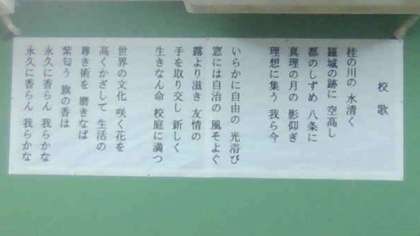 校歌
桂の川の 水清く
羅城の跡に 空高し
都のしずめ 八条に
真理の月の 影仰ぎ
理想に集う 我ら今
いらかに自由の 光浴び
窓には自治の 風そよぐ
露より滋き 友情の
手を取り交し 新しく
生きなん命 校庭に満つ
世界の文化 咲く花を
高くかざして 生活の
尊き術を 磨きなば
紫匂う 旗の香は
永久に香らん 我らかな
永久に香らん 我らかな